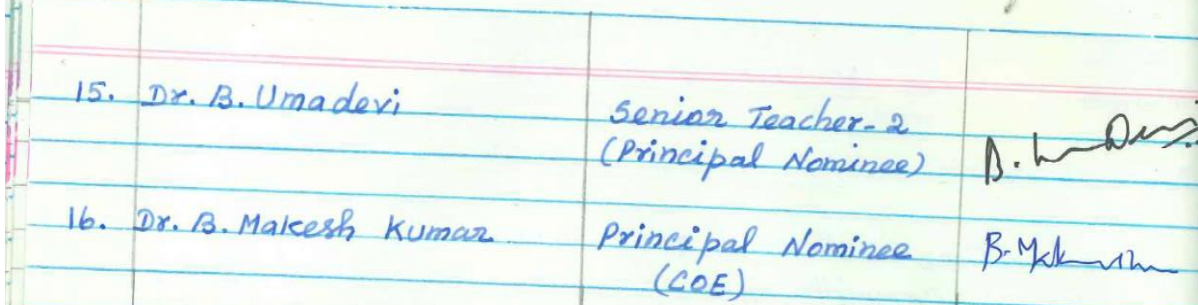 15. Dr. B. Umadevi Senior Teacher-2
(Principal Nominee)
16. Dr. B. Makesh Kumar Principal Nominee
(COE)